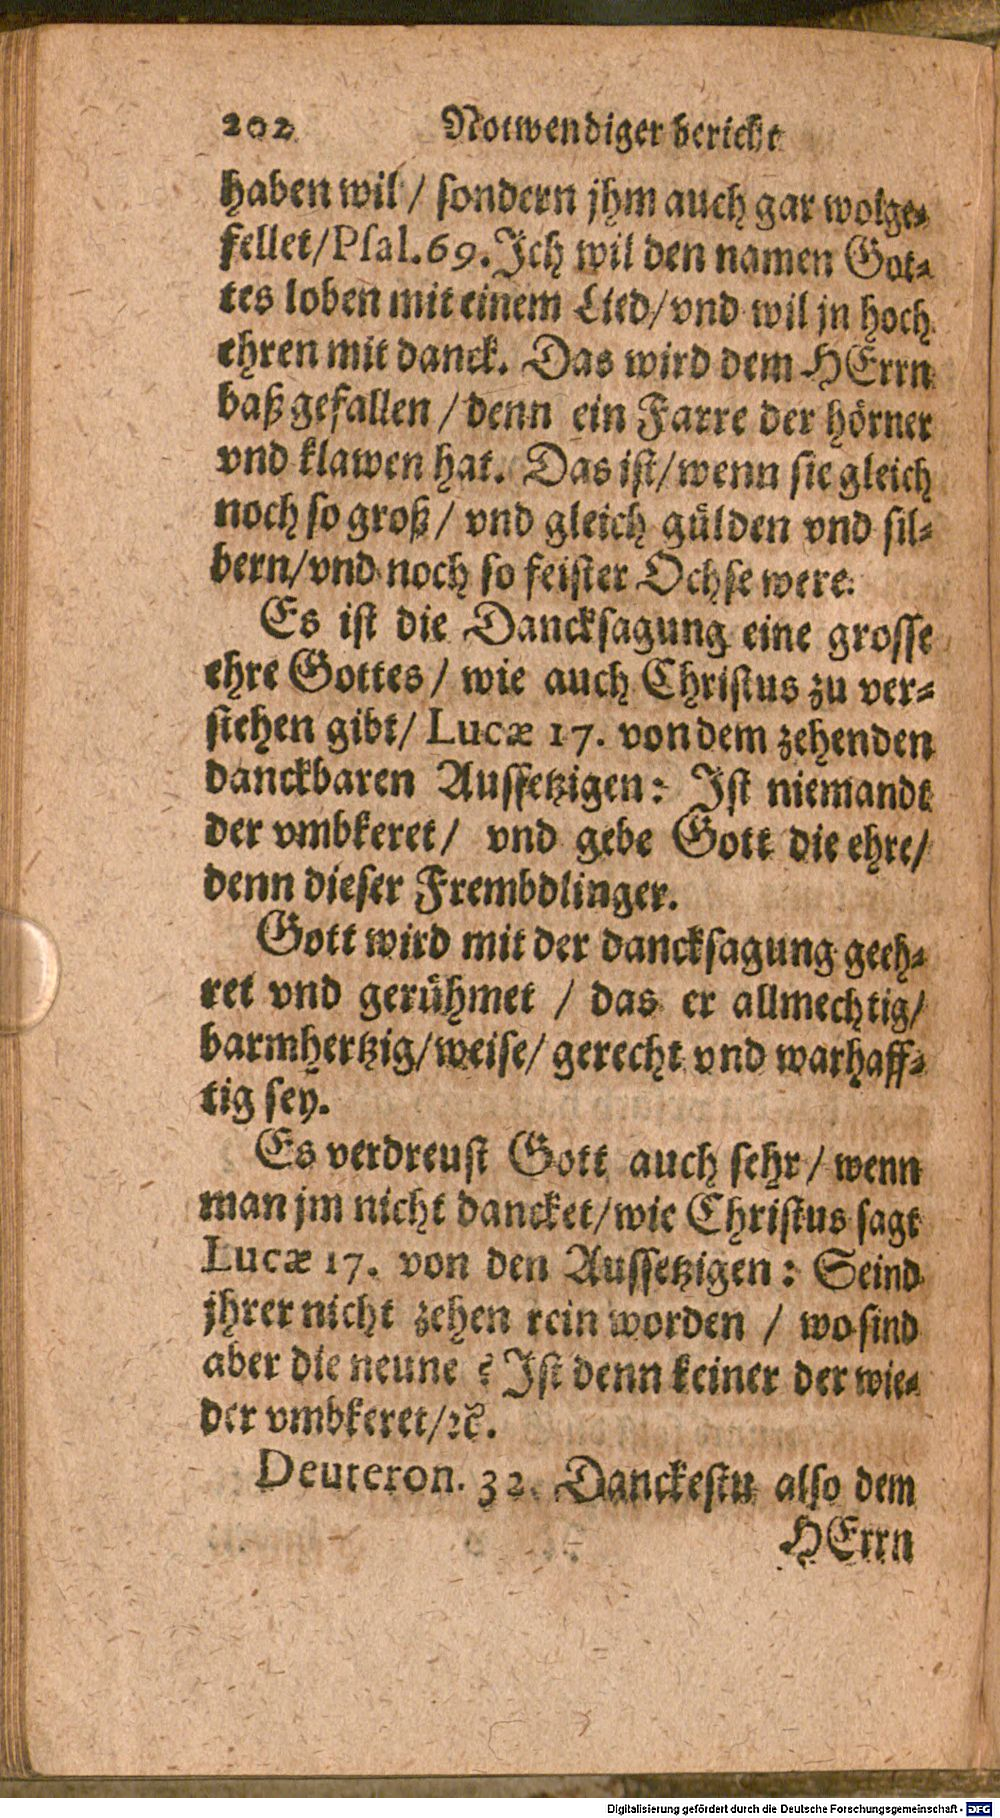 202 Notwendiger bericht
haben wil / sondern jhm auch gar wolge-
fellet/Psal.69. Jch wil den namen Got-
tes loben mit einem Lied/vnd wil jn hoch
ehren mit danck. Das wird dem HErrn
baß gefallen / denn ein Farre der hörner
vnd klawen hat. Das ist/wenn sie gleich
noch so groß / vnd gleich gülden vnd sil-
bern/vnd noch so feister Ochse were.
Es ist die Dancksagung eine grosse
ehre Gottes / wie auch Christus zu ver-
stehen gibt/ Lucæ 17. von dem zehenden
danckbaren Aussetzigen: Jst niemandt
der vmbkeret / vnd gebe Gott die ehre/
denn dieser Frembdlinger.
Gott wird mit der dancksagung geeh-
ret vnd gerühmet / das er allmechtig/
barmhertzig/weise/ gerecht vnd warhaff-
tig sey.
Es verdreust Gott auch sehr / wenn
man jm nicht dancket/wie Christus sagt
Lucæ 17. von den Aussetzigen: Seind
jhrer nicht zehen rein worden / wo sind
aber die neune ? Jst denn keiner der wie-
der vmbkeret/ꝛc̃.
Deuteron. 32. Danckestu also dem
HErrn
Digitalisierung gefördert durch die Deutsche Forschungsgemeinschaft - DFG